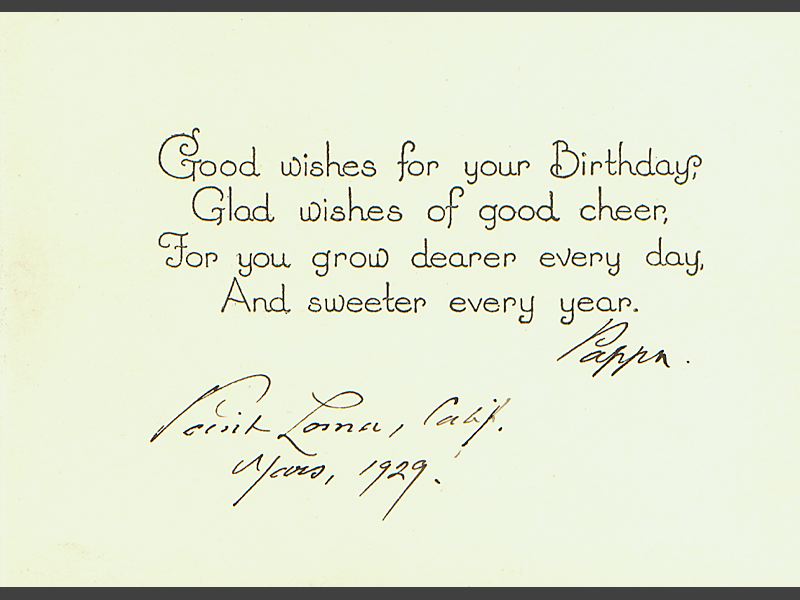 Good wishes for your Birthday,
Glad wishes of good cheer,
For you grow dearer every day,
And sweeter every year.
Pappa.
Point Loma, Calif.
Mars, 1929.